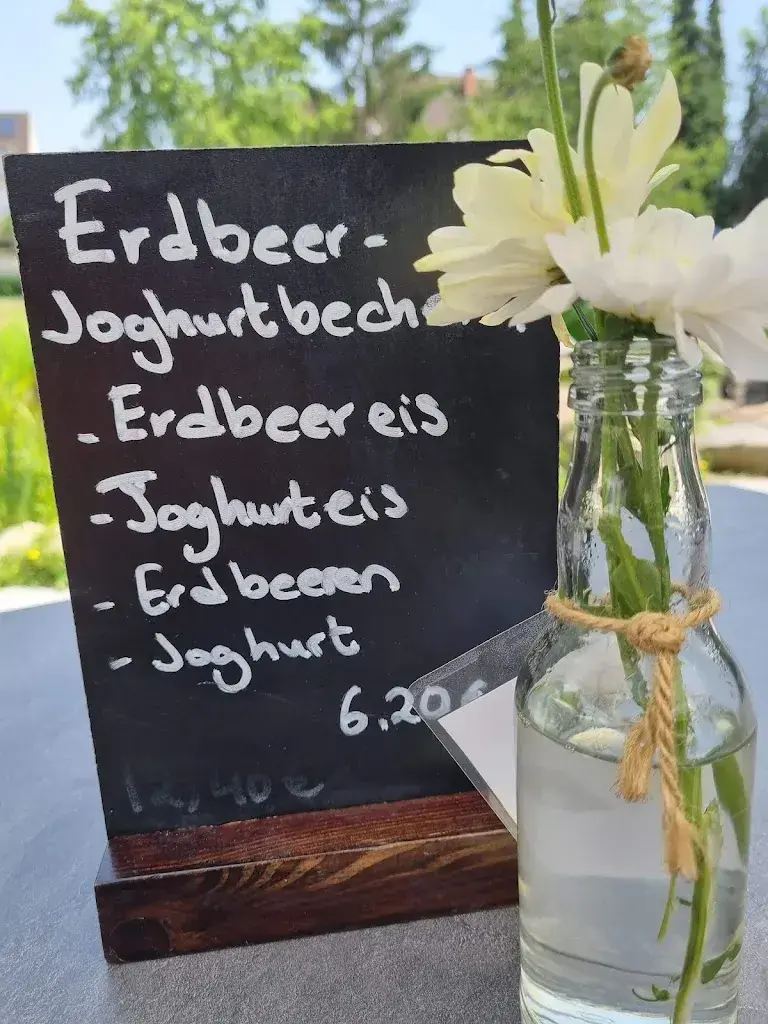 Erdbeer-
Joghurtbech
- Erdbeereis
- Joghurteis
- Erdbeeren
- Joghurt
6.20€
12,40€